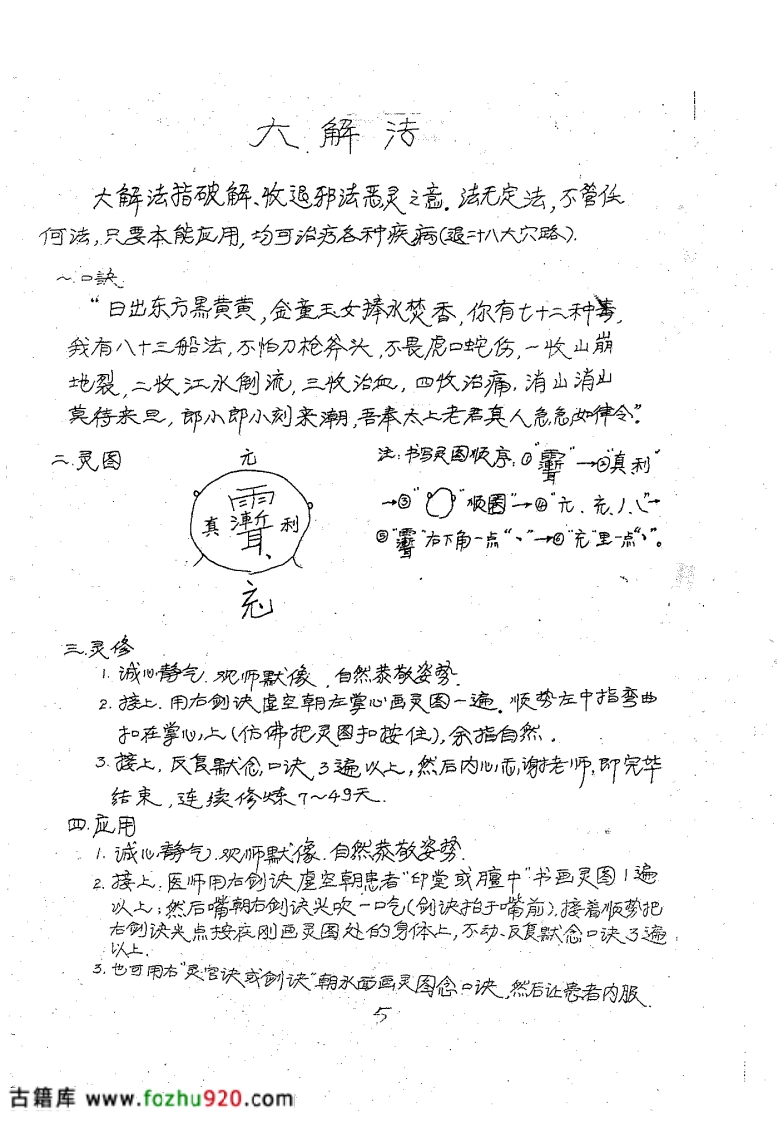 大解法
大解法指破解、收退邪法恶灵之意。法无定法,不管任
何法,只要本能应用,均可治疗各种疾病(退二十八大穴路).
一.口訣.
“日出东方黑黄黄,金童玉女捧水焚香,你有七十二种毒,
我有八十三船法,不怕刀枪斧头,不畏虎口蛇伤,一收山崩
地裂,二收江水倒流,三收治血,四收治痛.消山消山
莫待来旦,郎小郎小刻来潮,吾奉太上老君真人急急如律令”.
二.灵图
元
真 利
充
注:书写灵图顺序:① → ②“真利”
→③“ ”顺圈”→④“元.充.八”→
⑤“ ”右下角一点“丶”→⑥“充”里一点“丶”。
三.灵修
1. 诚心静气.观师默像.自然恭敬姿势.
2. 接上.用右剑诀虚空朝左掌心画灵图一遍。顺势左中指弯曲
扣在掌心上(仿佛把灵图扣按住),余指自然.
3. 接上.反复默念口诀3遍以上,然后内心感谢老师,即完毕
结束,连续修炼7~49天.
四.应用
1. 诚心静气.观师默像.自然恭敬姿势.
2. 接上.医师用右剑诀虚空朝患者“印堂或膻中”书画灵图1遍
以上;然后嘴朝右剑诀尖吹一口气(剑诀抬于嘴前).接着顺势把
右剑诀尖点按在刚画灵图处的身体上,不动.反复默念口诀3遍
以上.
3. 也可用右“灵官诀或剑诀”朝水面画灵图念口诀,然后让患者内服.
5
古籍库 www.fozhu920.com